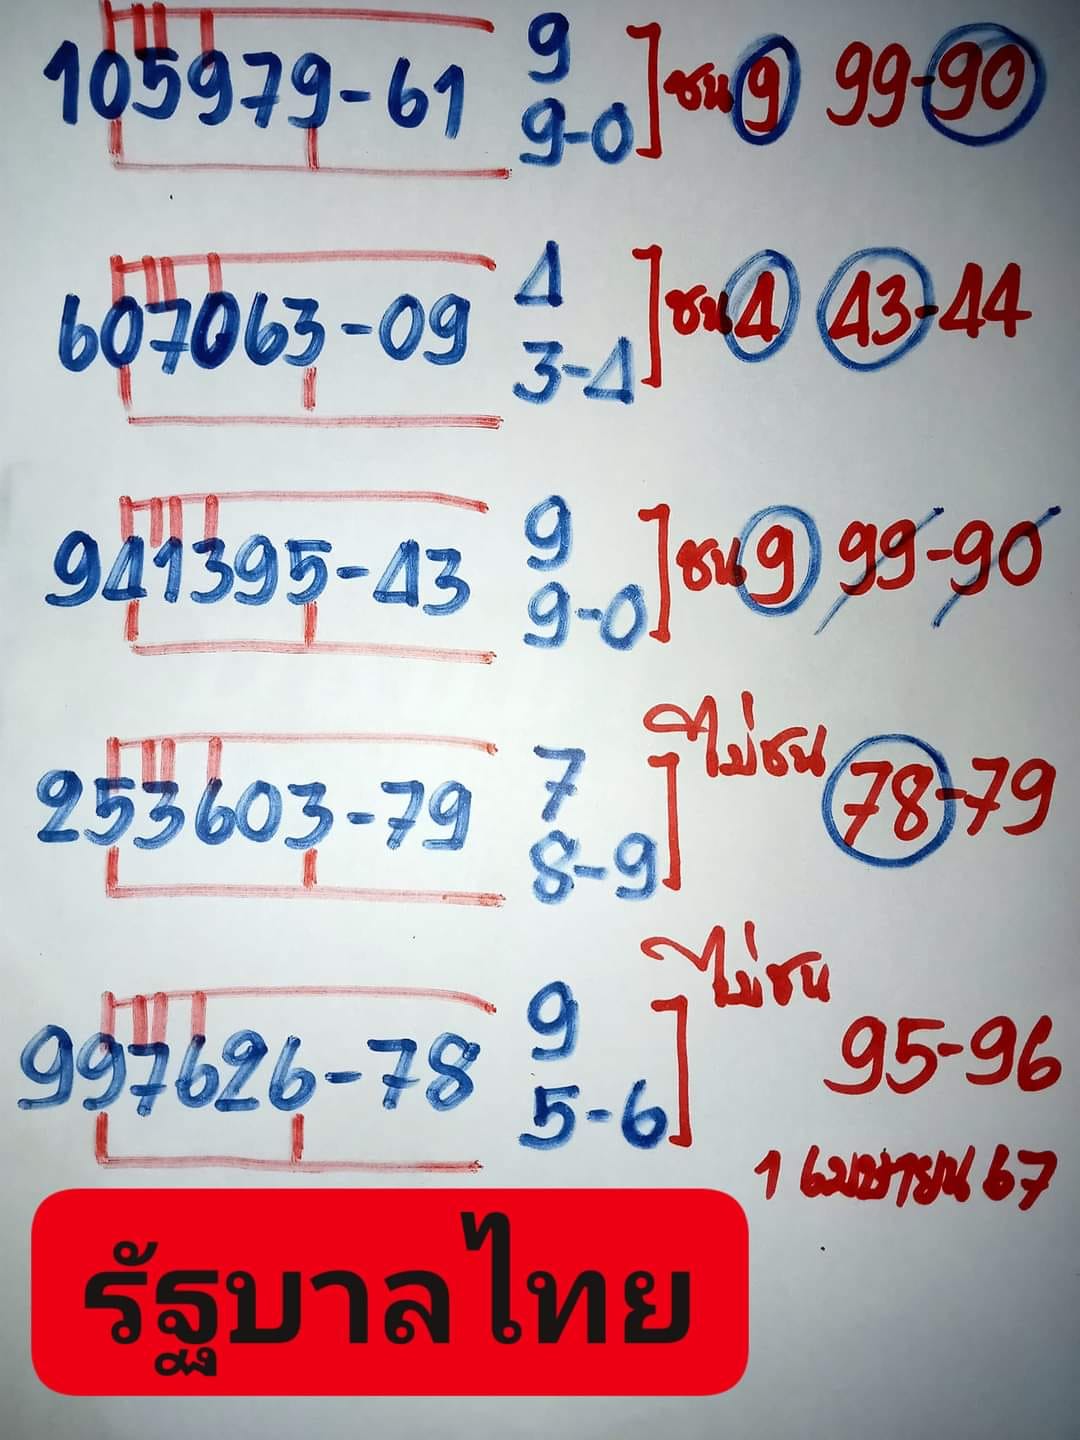 105979-61 9 ชน 9 99-90
9-0
607063-09 4 ชน 4 43-44
3-4
941395-43 9 ชน 9 99-90
9-0
ไม่ชน
253603-79 7 78-79
8-9
ไม่ชน
997626-78 9 95-96
5-6
1 เมษายน 67
รัฐบาลไทย